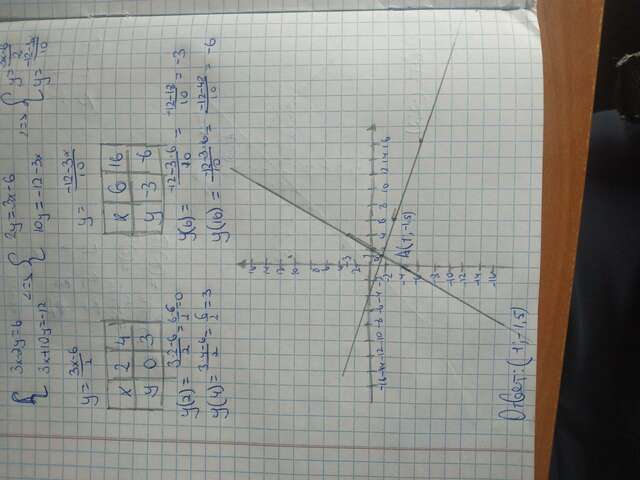 { 3x-2y=6 <=> { 2y=3x-6 <=> { y=\frac{3x-6}{2}
3x+10y=-12 10y=-12-3x y=\frac{-12-3x}{10}
y=\frac{3x-6}{2} y=\frac{-12-3x}{10}
x 2 4 x 6 16
y 0 3 y -3 -6
y(2)=\frac{3·2-6}{2}=\frac{6-6}{2}=0 y(6)=\frac{-12-3·6}{10}=\frac{-12-18}{10}=-3
y(4)=\frac{3·4-6}{2}=\frac{6}{2}=3 y(16)=\frac{-12-3·16}{10}=\frac{-12-48}{10}=-6
A(1;-1,5)
Ответ: (1;-1,5)